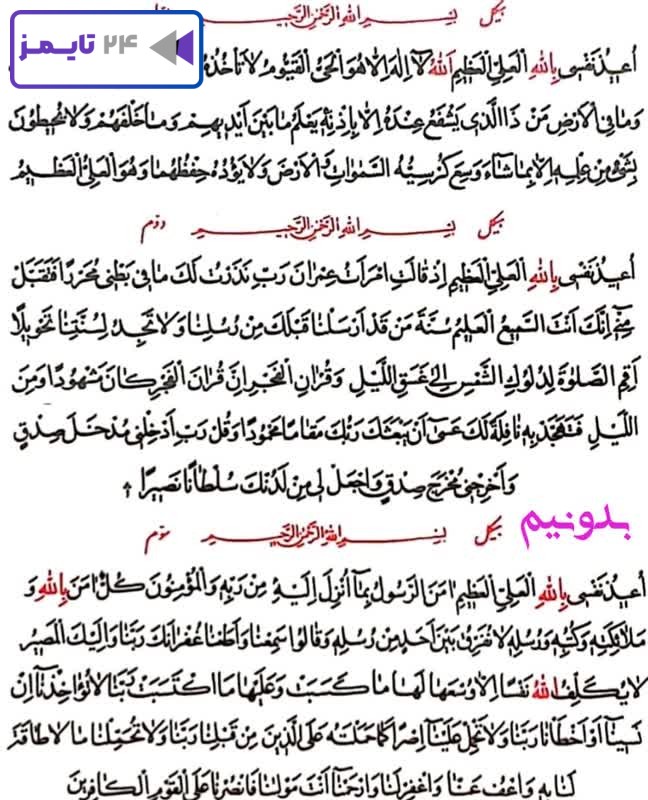 هیکل بِسْمِ اللهِ الرَّحْمٰنِ الرَّحِیمِ
۲۴ تایمز
اُعیذُ نَفْسی بِاللهِ الْعَلِیِّ الْعَظیمِ اَللهُ لآ اِلٰهَ اِلّا هُوَ الْحَیُّ الْقَیُّومُ لا تَأْخُذُهُ
وَ ما فِی الْاَرْضِ مَنْ ذَا الَّذی یَشْفَعُ عِنْدَهُ اِلّا بِاِذْنِهِ یَعْلَمُ ما بَیْنَ اَیْدیهِمْ وَ ما خَلْفَهُمْ وَ لا یُحیطُونَ
بِشَیْءٍ مِنْ عِلْمِهِ اِلّا بِما شآءَ وَسِعَ کُرْسِیُّهُ السَّمٰوَاتِ وَ الْاَرْضَ وَ لا یَؤُدُهُ حِفْظُهُما وَ هُوَ الْعَلِیُّ الْعَظیمُ
هیکل بِسْمِ اللهِ الرَّحْمٰنِ الرَّحِیمِ دوّم
اُعیذُ نَفْسی بِاللهِ الْعَلِیِّ الْعَظیمِ اِذْ قالَتِ امْرَاَتُ عِمْرانَ رَبِّ نَذَرْتُ لَکَ ما فی بَطْنی مُحَرَّرًا فَتَقَبَّلْ
مِنّی اِنَّکَ اَنْتَ السَّمیعُ الْعَلیمُ سُنَّةَ مَنْ قَدْ اَرْسَلْنا قَبْلَکَ مِنْ رُسُلِنا وَ لا تَجِدُ لِسُنَّتِنا تَحْویلًا
اَقِمِ الصَّلٰوةَ لِدُلُوکِ الشَّمْسِ اِلیٰ غَسَقِ اللَّیْلِ وَ قُرْانَ الْفَجْرِ اِنَّ قُرْانَ الْفَجْرِ کانَ مَشْهُودًا وَ مِنَ
اللَّیْلِ فَتَهَجَّدْ بِهِ نافِلَةً لَکَ عَسیٰ اَنْ یَبْعَثَکَ رَبُّکَ مَقامًا مَحْمُودًا وَ قُلْ رَبِّ اَدْخِلْنی مُدْخَلَ صِدْقٍ
وَ اَخْرِجْنی مُخْرَجَ صِدْقٍ وَ اجْعَلْ لی مِنْ لَدُنْکَ سُلْطانًا نَصیرًا
بدونیم
هیکل بِسْمِ اللهِ الرَّحْمٰنِ الرَّحِیمِ سوّم
اُعیذُ نَفْسی بِاللهِ الْعَلِیِّ الْعَظیمِ امَنَ الرَّسُولُ بِمآ اُنْزِلَ اِلَیْهِ مِنْ رَبِّهِ وَ الْمُؤْمِنُونَ کُلٌّ امَنَ بِاللهِ وَ
مَلآئِکَتِهِ وَ کُتُبِهِ وَ رُسُلِهِ لا نُفَرِّقُ بَیْنَ اَحَدٍ مِنْ رُسُلِهِ وَ قالُوا سَمِعْنا وَ اَطَعْنا غُفْرانَکَ رَبَّنا وَ اِلَیْکَ الْمَصیرُ
لا یُکَلِّفُ اللهُ نَفْسًا اِلّا وُسْعَها لَها ما کَسَبَتْ وَ عَلَیْها مَا اکْتَسَبَتْ رَبَّنا لا تُؤاخِذْنآ اِنْ
نَسینآ اَوْ اَخْطَأْنا رَبَّنا وَ لا تَحْمِلْ عَلَیْنآ اِصْرًا کَما حَمَلْتَهُ عَلَی الَّذینَ مِنْ قَبْلِنا رَبَّنا وَ لا تُحَمِّلْنا ما لا طاقَةَ
لَنا بِهِ وَ اعْفُ عَنّا وَ اغْفِرْ لَنا وَ ارْحَمْنآ اَنْتَ مَوْلٰنا فَانْصُرْنا عَلَی الْقَوْمِ الْکافِرینَ